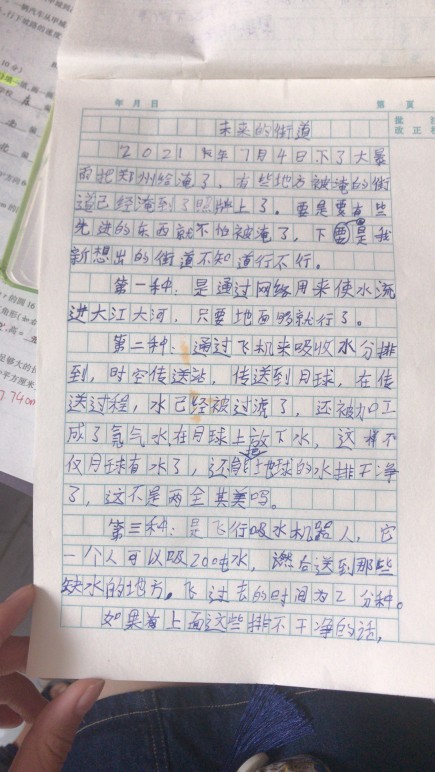 年 月 日
第 页
批
改
未来的街道
2021年7月4日下了大暴
雨把郑州给淹了，有些地方被淹的街
道已经淹到了照牌上了。要是要有些
先进的东西就不怕被淹了，下要是我
新想出的街道不知道行不行。
第一种：是通过网络用来使水流
进大江大河，只要地面够就行了。
第二种：通过飞机来吸收水分排
到，时空传送站，传送到月球，在传
送过程，水已经被过滤了，还被加工
成了氧气水在月球上放下水，这样不
仅月球有水了，还能把地球的水排干净
了，这不是两全其美吗。
第三种：是飞行吸水机器人，它
一个人可以吸200吨水，然后送到那些
缺水的地方。飞过去的时间为2分种。
如果有上面这些排不干净的话，